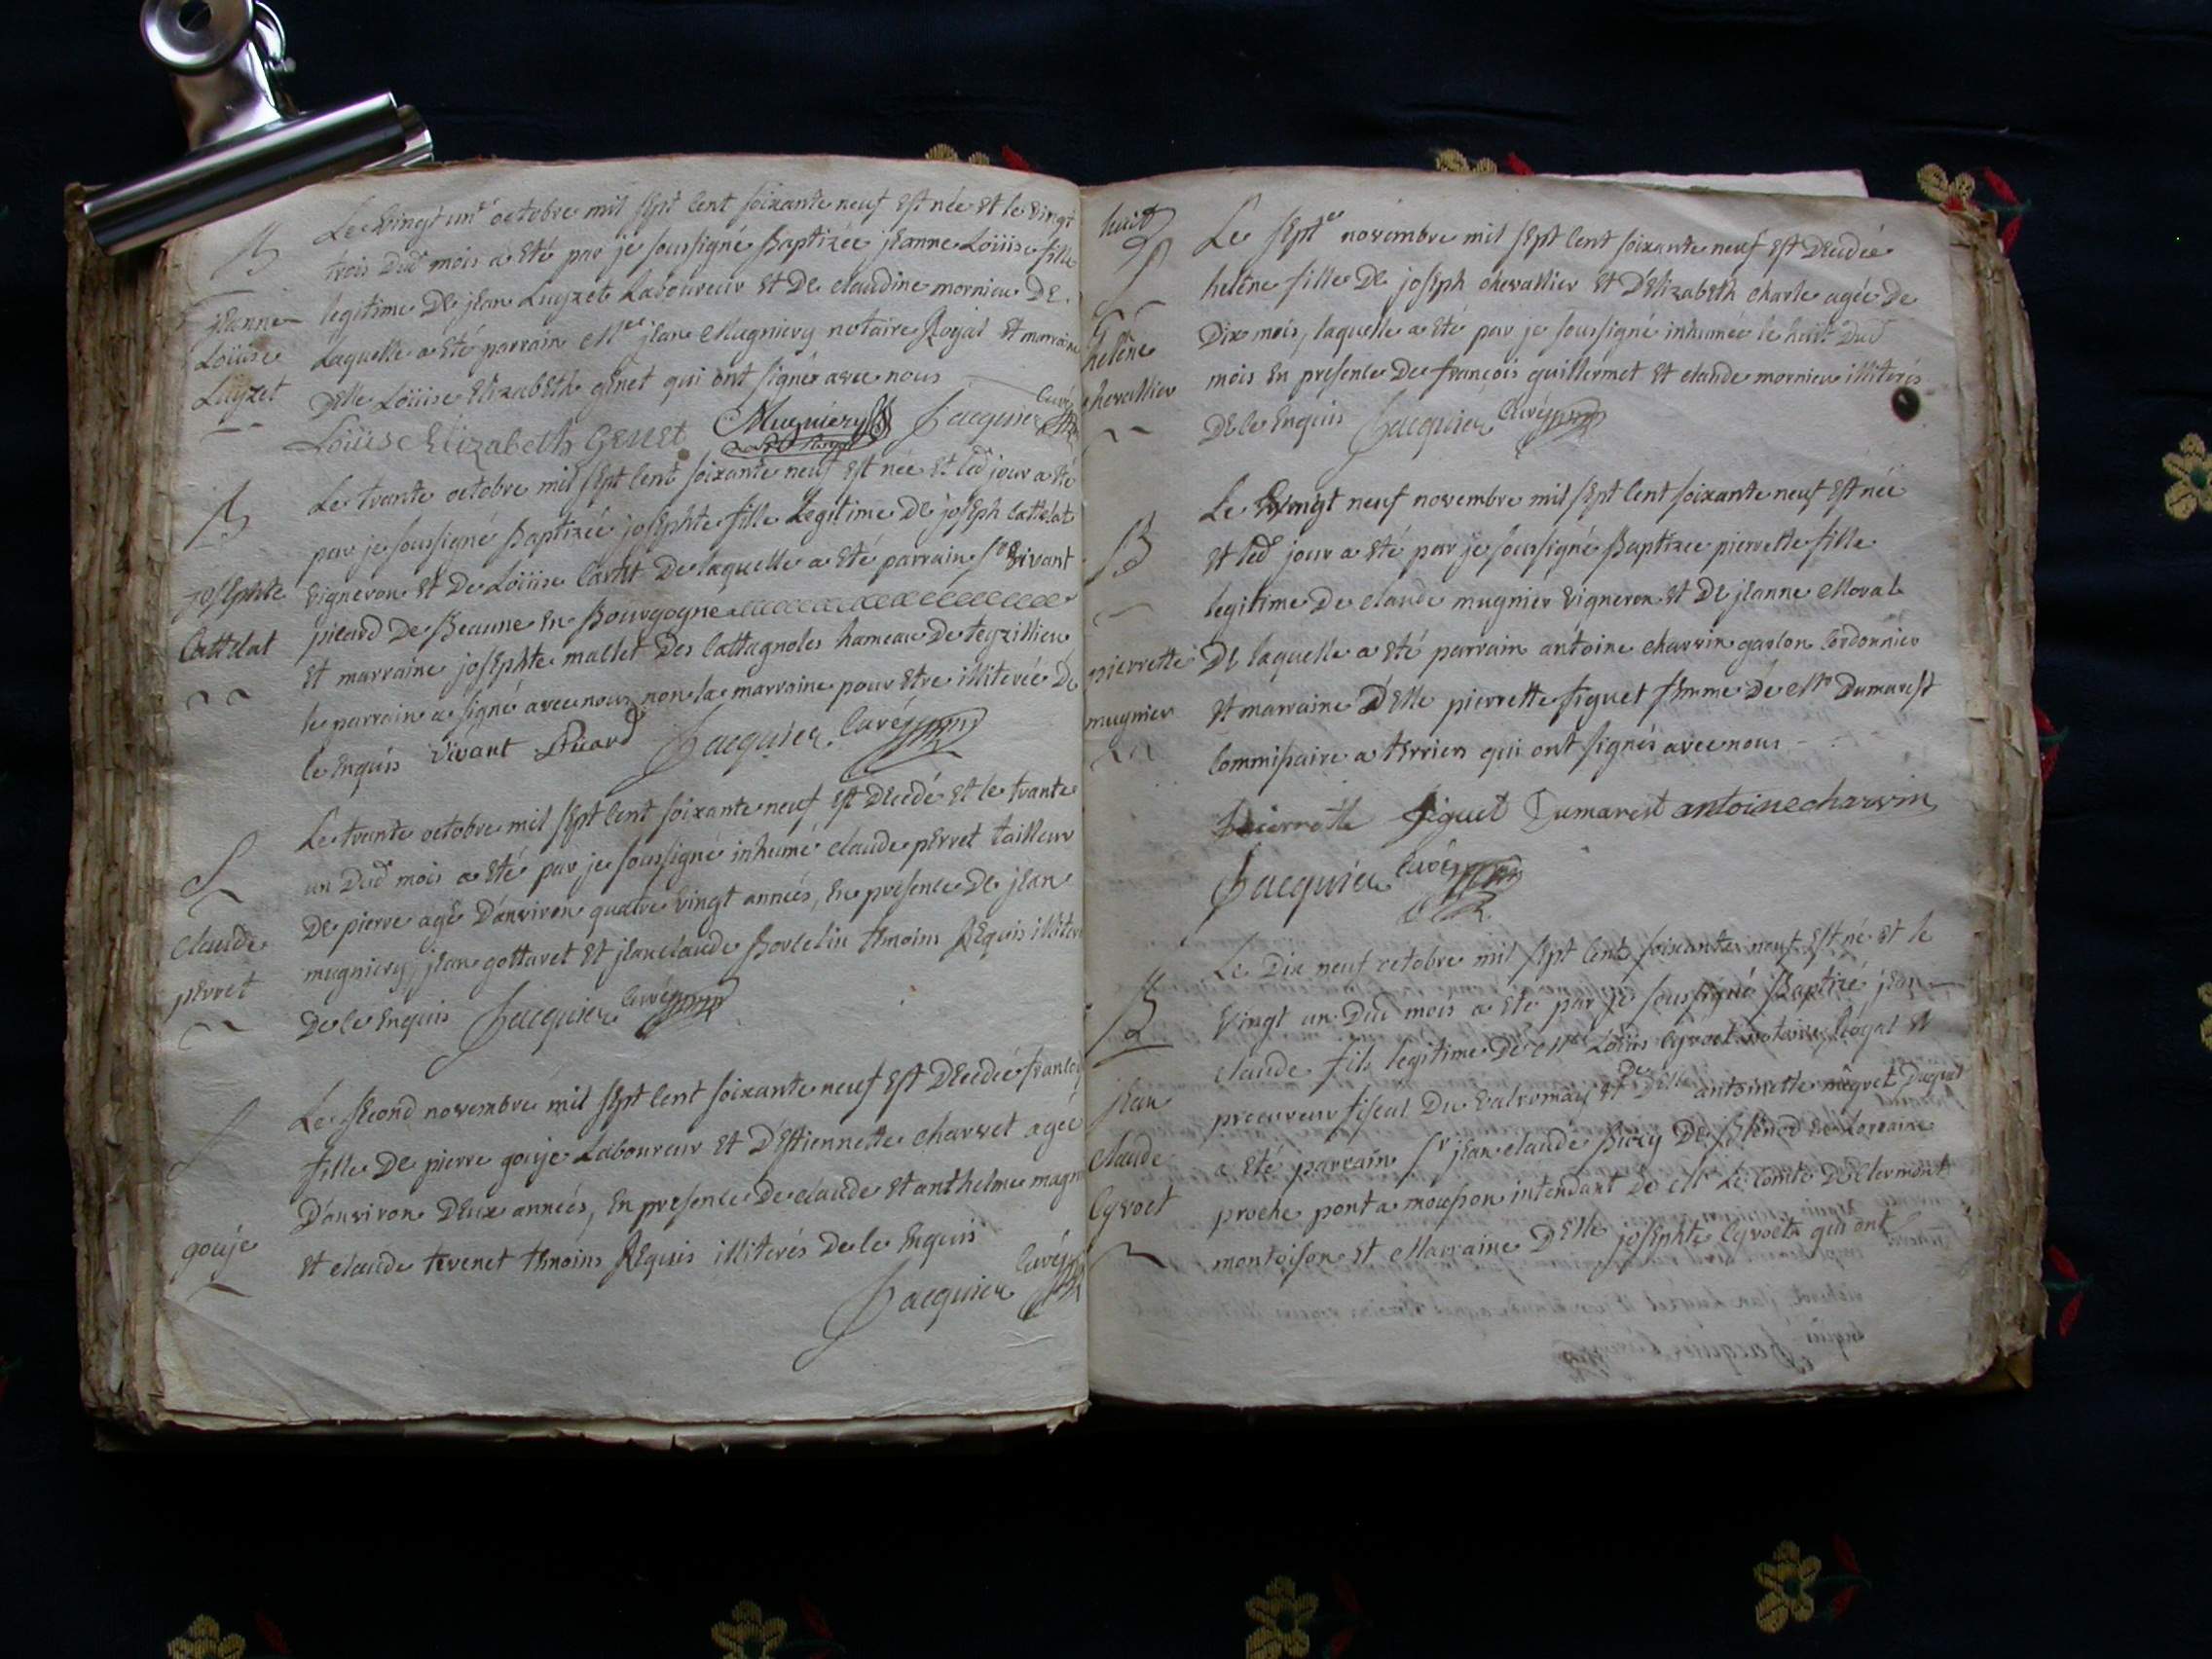 Le vingt un.e octobre mil sept cent soixante neuf est née et le vingt
trois dud mois a été par je soussigné Baptizée jeanne Loüise fille
legitime de jean Luyzet Laboureur et de claudine mornieu de
Laquelle a été parrain M.re jean Mugniery notaire Royal et marraine
Delle Loüise Elizabeth genet qui ont signés avec nous
Loüise Elizabeth Genet Mugniery Jacquier curé
B
jeanne
Loüise
Luyzet
Le trante octobre mil sept cent soixante neuf est née et led jour a été
par je soussigné Baptizée josephte fille Legitime de joseph Cattelat
vigneron et de Loüise de laquelle a été parrain s.r vivant
picard de Beaune en Bourgogne
et marraine josephte mallet des Cattagnoles hameau de teyzillieu
le parrain a signé avec nous, non la marraine pour etre illiterée de
ce enquis Vivant Picard Jacquier curé
B
josephte
Cattelat
Le trante octobre mil sept cent soixante neuf est decedé et le trante
un dud mois a été par je soussigné inhumé claude perret tailleur
de pierre agé d'anviron quatre vingt années, en presence de jean
mugniery, jean gottaret et jean claude Borcelin temoins Requis
de ce enquis Jacquier curé
S
claude
perret
Le second novembre mil sept cent soixante neuf est decedée
fille de pierre gouje Laboureur et d'Estiennette charvet agée
d'anviron deux années, en presence de claude et anthelme
et claude tevenet temoins Requis illiterés de ce enquis
Jacquier curé
S
gouje
huit
Le sept.e novembre mil sept cent soixante neuf est decedée
helène fille de joseph chevallier et d'Elizabeth charle agée de
dix mois, laquelle a été par je soussigné inhumée le huit dud
mois en presence de françois guillermet et claude mornieu illiterés
de ce enquis Jacquier curé
S
helène
chevallier
Le vingt neuf novembre mil sept cent soixante neuf est née
et led jour a été par je soussigné Baptizée pierrette fille
legitime de claude mugnier vigneron et de jeanne Moral
de laquelle a été parrain antoine charvin garçon cordonnier
et marraine D'elle pierrette figuet femme de M.re Dumarest
commissaire a terriers qui ont signés avec nous
pierrette figuet Dumarest antoine charvin
Jacquier curé
B
pierrette
mugnier
Le dix neuf octobre mil sept cent soixante neuf est né et le
vingt un dud mois a été par je soussigné Baptizé jean
claude fils legitime de M.re Loüis Cyvoct notaire Royal et
procureur fiscal du valromay et de Delle antoinette duquel
a été parrain s.r jean claude de Blénod en Lorraine
proche pont a mousson intendant de M.r Le Comte de Clermont
montoison et Marraine Delle josephte Cyvoct qui ont
B
jean
claude
Cyvoct